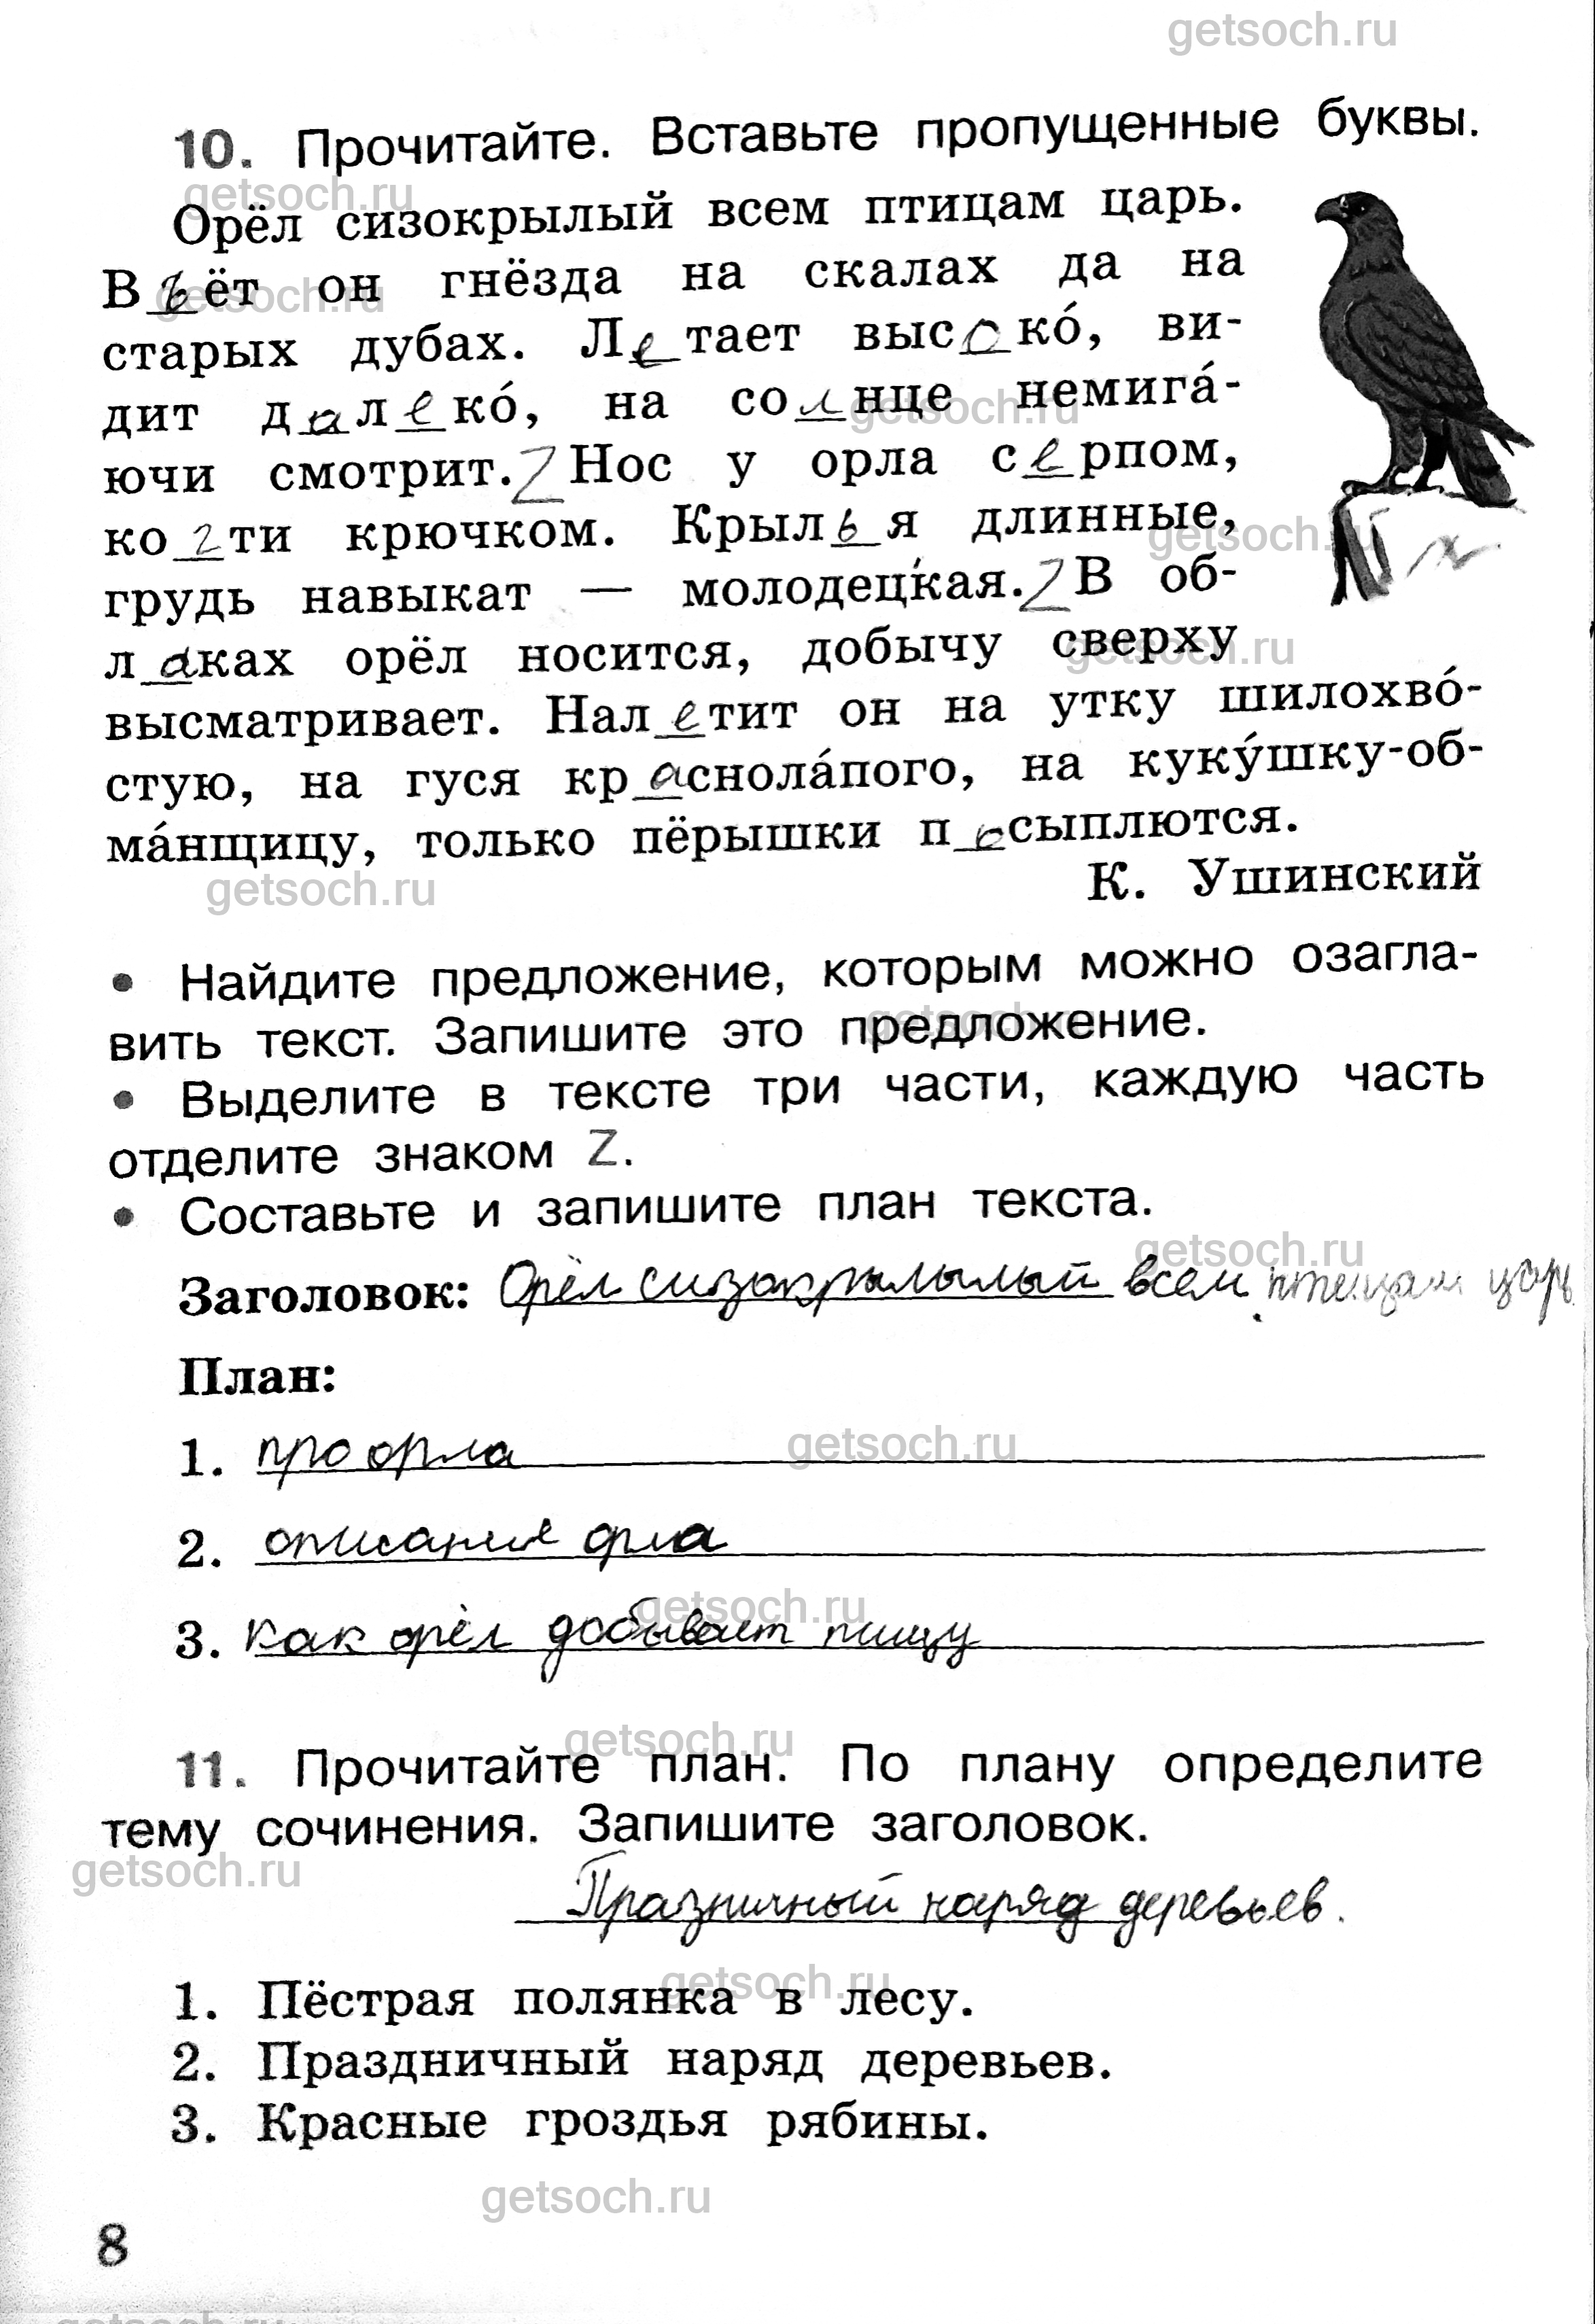 getsoch.ru
10. Прочитайте. Вставьте пропущенные буквы.
getsoch.ru
Орёл сизокрылый всем птицам царь.
Вьёт он гнёзда на скалах да на
getsoch.ru
старых дубах. Летает высоко́, ви-
дит далеко́, на солнце немига́-
getsoch.ru
ючи смотрит. Z Нос у орла серпом,
когти крючком. Крылья длинные,
getsoch.ru
грудь навыкат — молодецкая. Z В об-
лаках орёл носится, добычу сверху
getsoch.ru
высматривает. Налетит он на утку шилохво́-
стую, на гуся краснола́пого, на куку́шку-об-
ма́нщицу, только пёрышки посыплются.
К. Ушинский
getsoch.ru
• Найдите предложение, которым можно озагла-
вить текст. Запишите это предложение.
getsoch.ru
• Выделите в тексте три части, каждую часть
отделите знаком Z.
• Составьте и запишите план текста.
getsoch.ru
Заголовок: Орёл сизокрылылый всем птицам царь
План:
1. про орла
getsoch.ru
2. описание орла
getsoch.ru
3. как орёл добывает пищу
getsoch.ru
11. Прочитайте план. По плану определите
тему сочинения. Запишите заголовок.
getsoch.ru
Празничный наряд деревьев.
getsoch.ru
1. Пёстрая полянка в лесу.
2. Праздничный наряд деревьев.
3. Красные гроздья рябины.
getsoch.ru
8
getsoch.ru